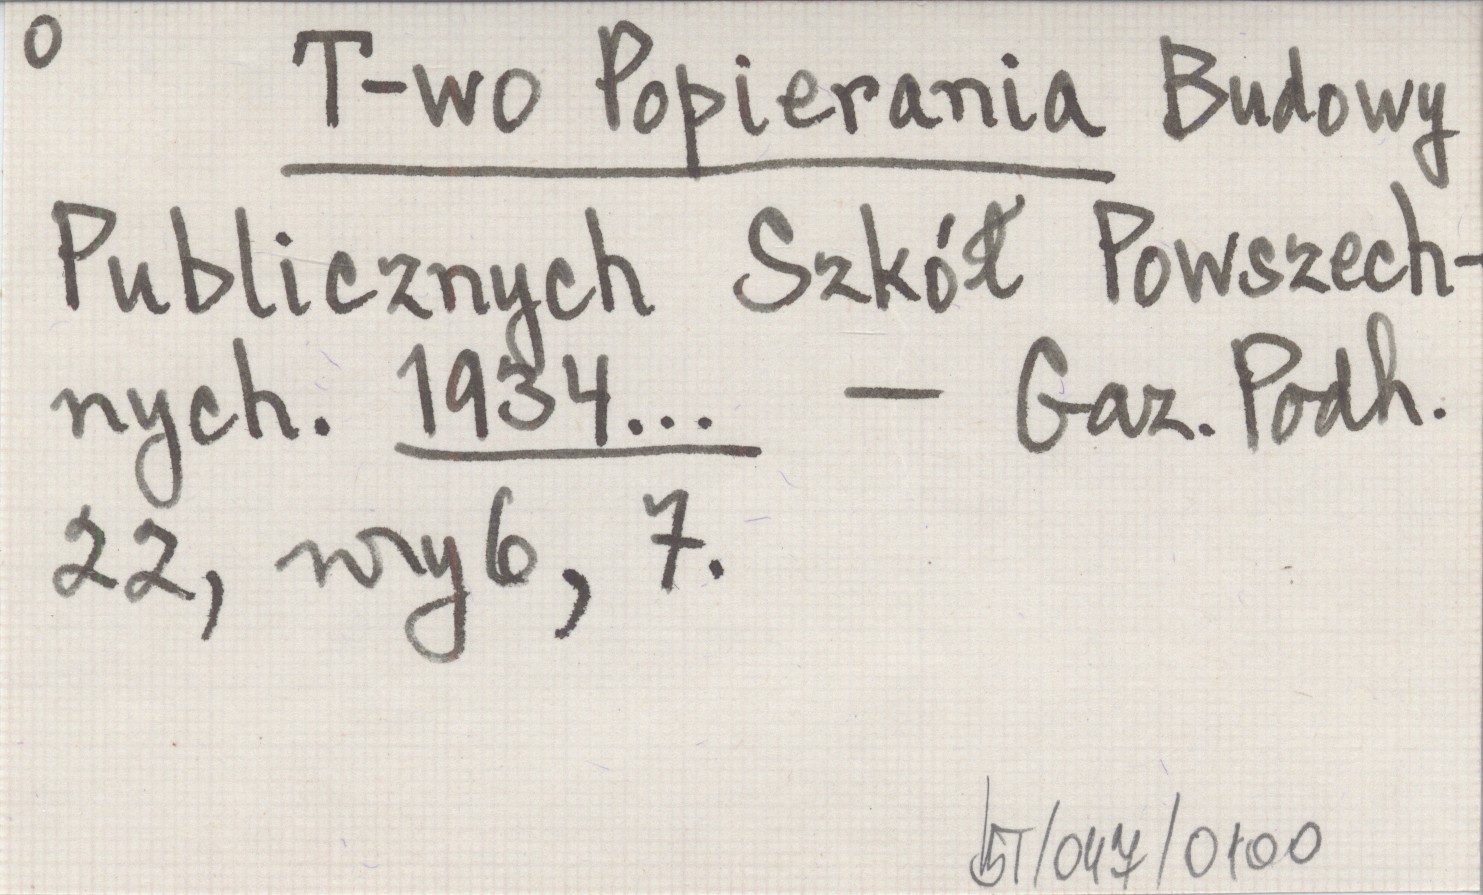 o T-wo Popierania Budowy
Publicznych Szkół Powszech-
nych. 1934... — Gaz. Podh.
22, nry 6, 7.
/047/0100